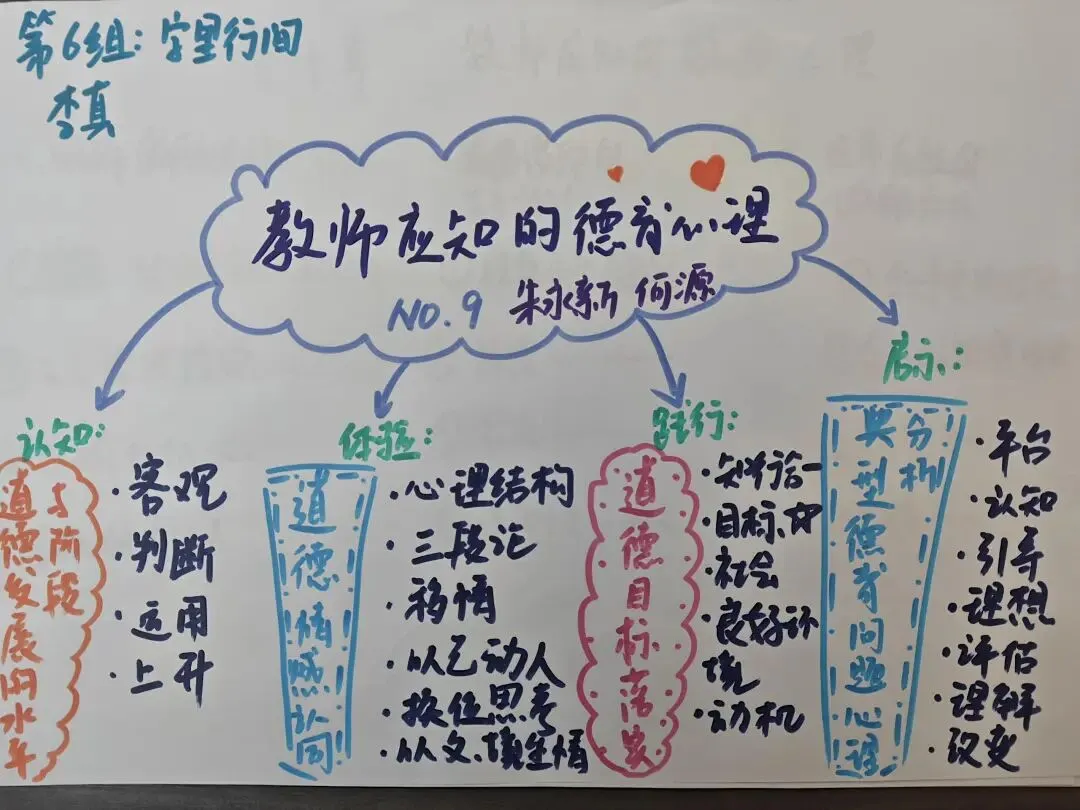 第6组：字里行间
李真
教师应知的德育心理
NO.9 朱永新 何源
认知：
道德发展的水平
与阶段
·客观
·判断
·运用
·上升
体验：
道德情感认同
·心理结构
·三段论
·移情
·以己动人
·换位思考
·以文、境生情
践行：
道德目标落实
·知行合一
·目标、
·社会
·良好环
境
·动机
启示：
典型德育问题心理
分析
·平台
·认知
·引导
·理想
·评估
·理解
·改变